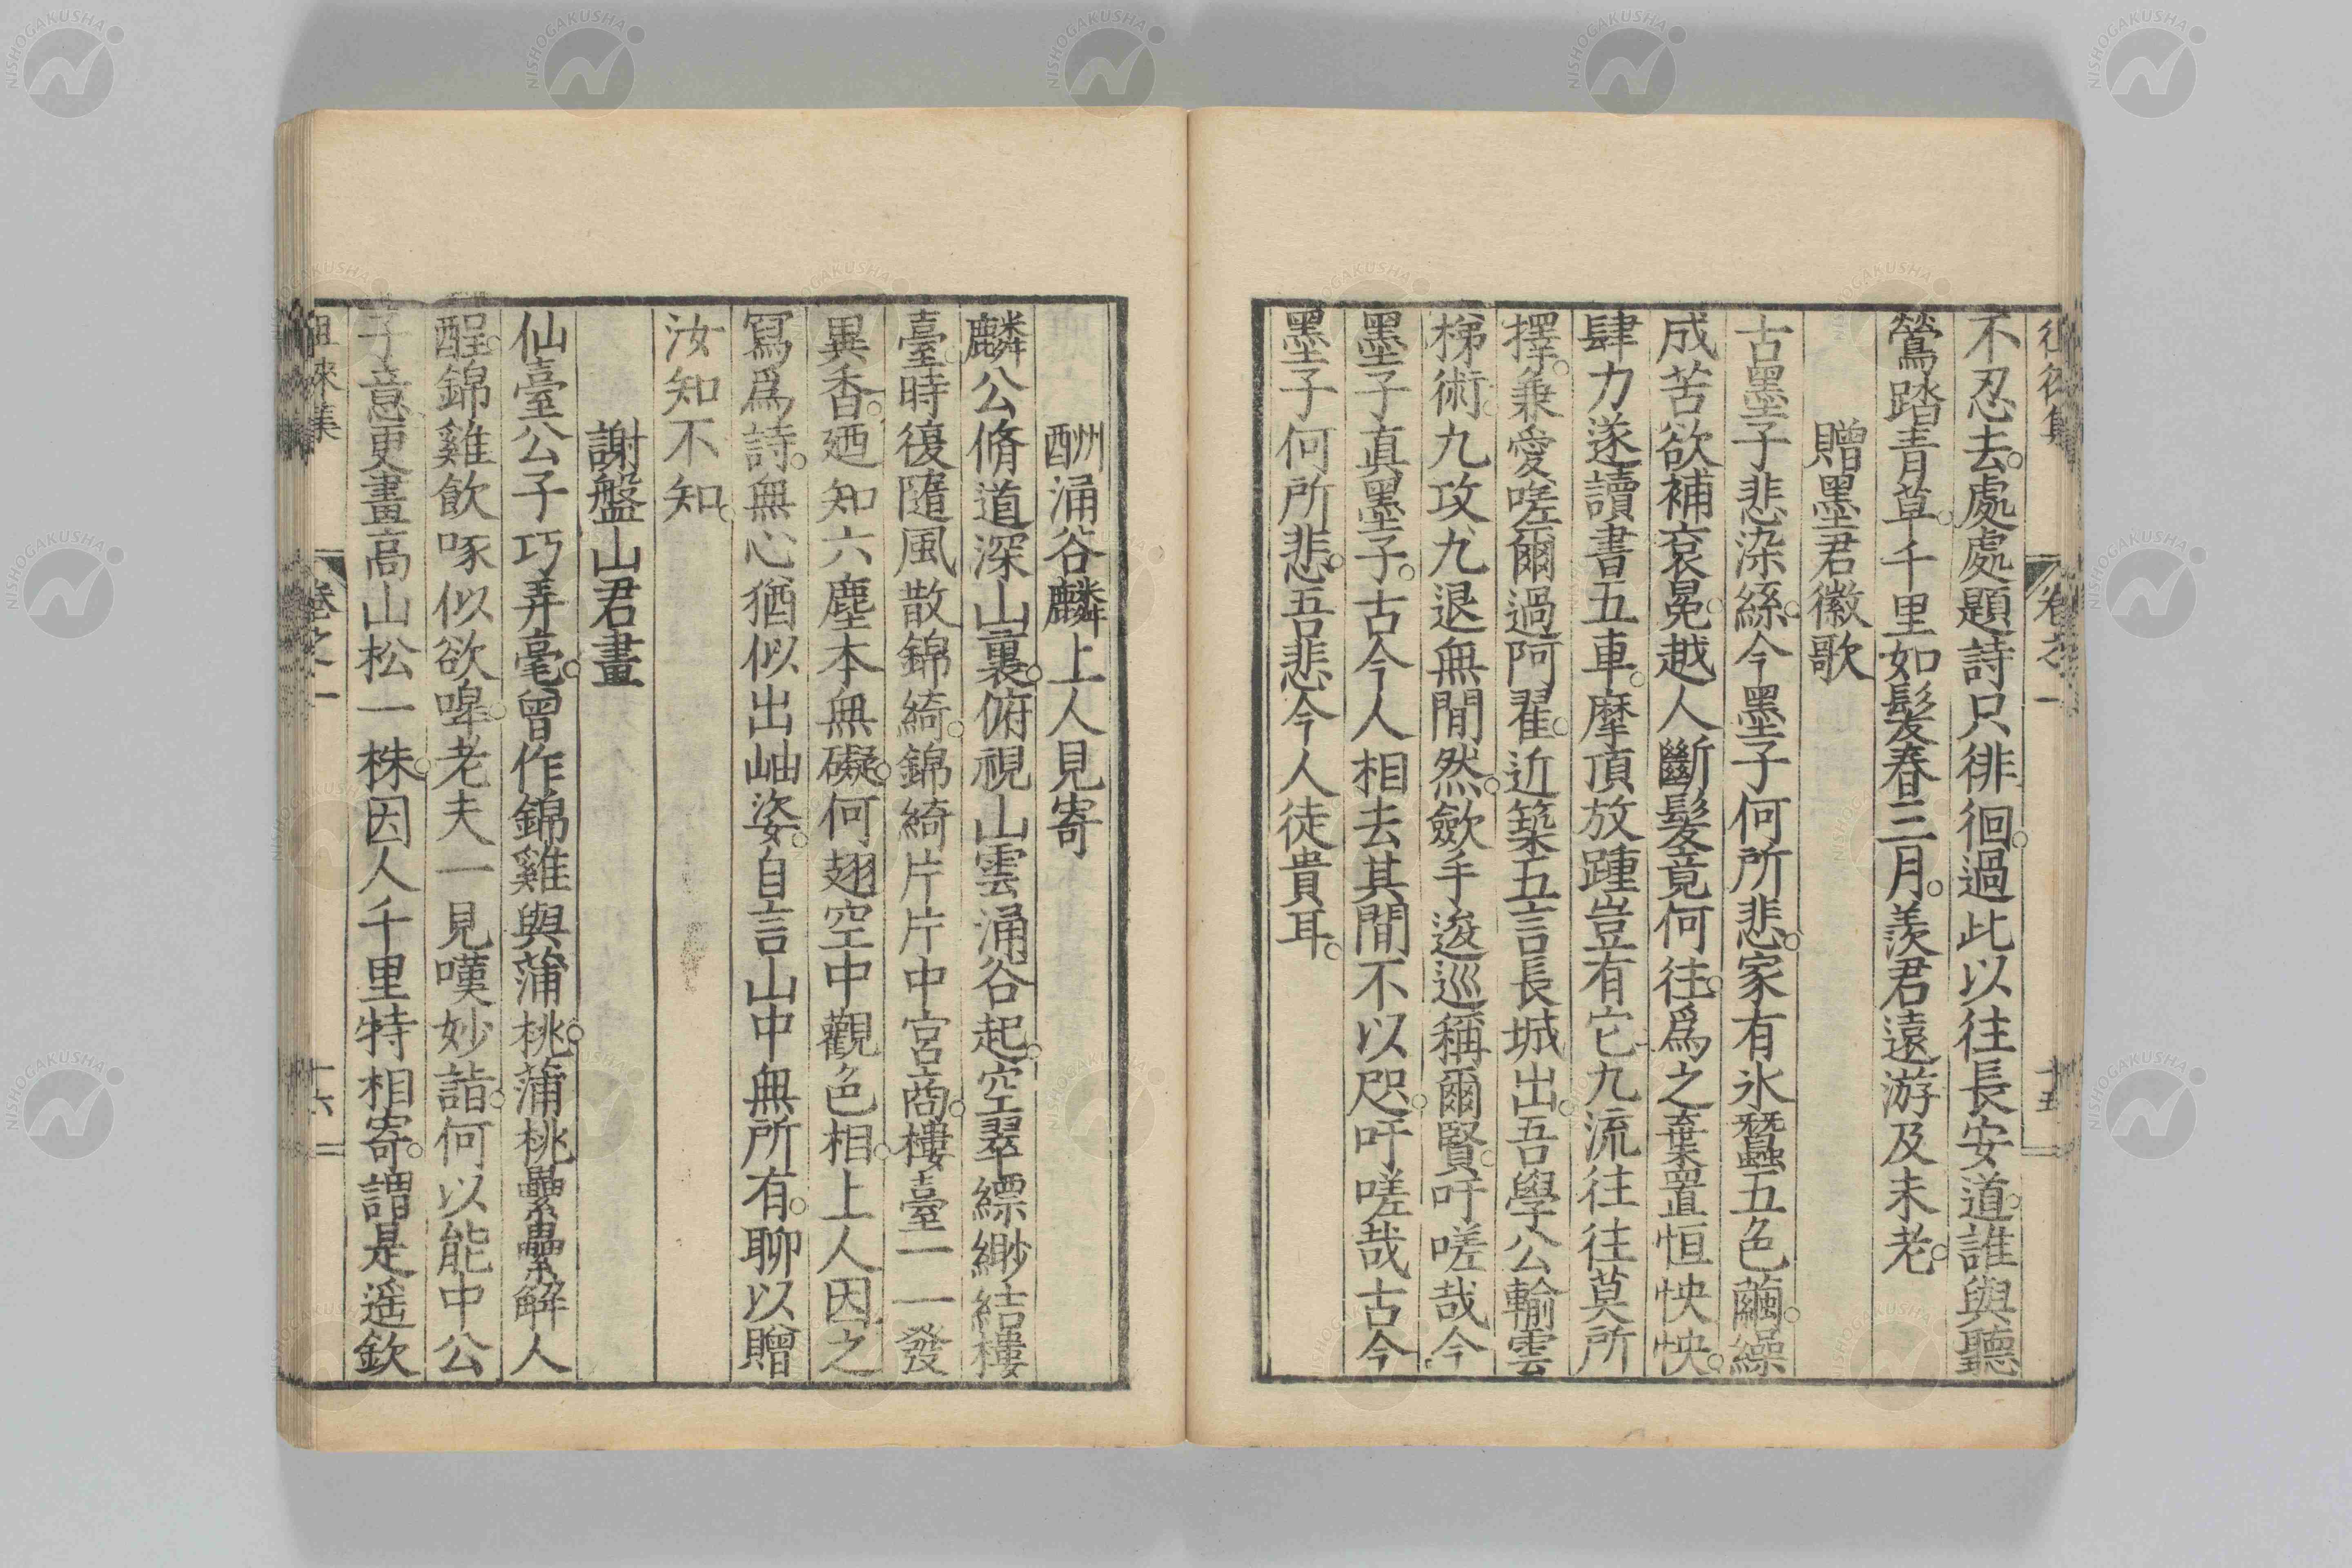 不忍去。處處題詩只徘徊。過此以往長安道。誰與聽
鶯踏青草。千里如髮春三月。羨君遠游及未老。
贈墨君徽歌
古墨子悲染絲。今墨子何所悲。家有氷蠶五色繭。繰
成苦欲補袞冕。越人斷髮竟何往。爲之棄置恒怏怏。
肆力遂讀書五車。摩頂放踵豈有它。九流往往莫所
擇。兼愛嗟爾過阿翟。近築五言長城出。吾學公輸雲
梯術。九攻九退無間然。斂手逡巡稱爾賢。吁嗟哉今
墨子真墨子。古今人相去其間不以咫。吁嗟哉古今
墨子何所悲。吾悲今人徒貴耳。
酬涌谷麟上人見寄
麟公脩道深山裏。俯視山雲涌谷起。空翠縹緲結樓
臺。時復隨風散錦綺。錦綺片片中宮商。樓臺一一發
異香。廼知六塵本無礙。何翅空中觀色相。上人因之
寫爲詩。無心猶似出岫姿。自言山中無所有。聊以贈
汝知不知。
謝盤山君畫
仙臺公子巧弄毫。曾作錦雞與蒲桃。蒲桃纍纍解人
酲。錦雞飲啄似欲嘷。老夫一見嘆妙詣。何以能中公
子意。更畫高山松一株。因人千里特相寄。謂是遥欽
徂徠集
卷之一
十六
卷之一
十五
NISHOGAKUSHA